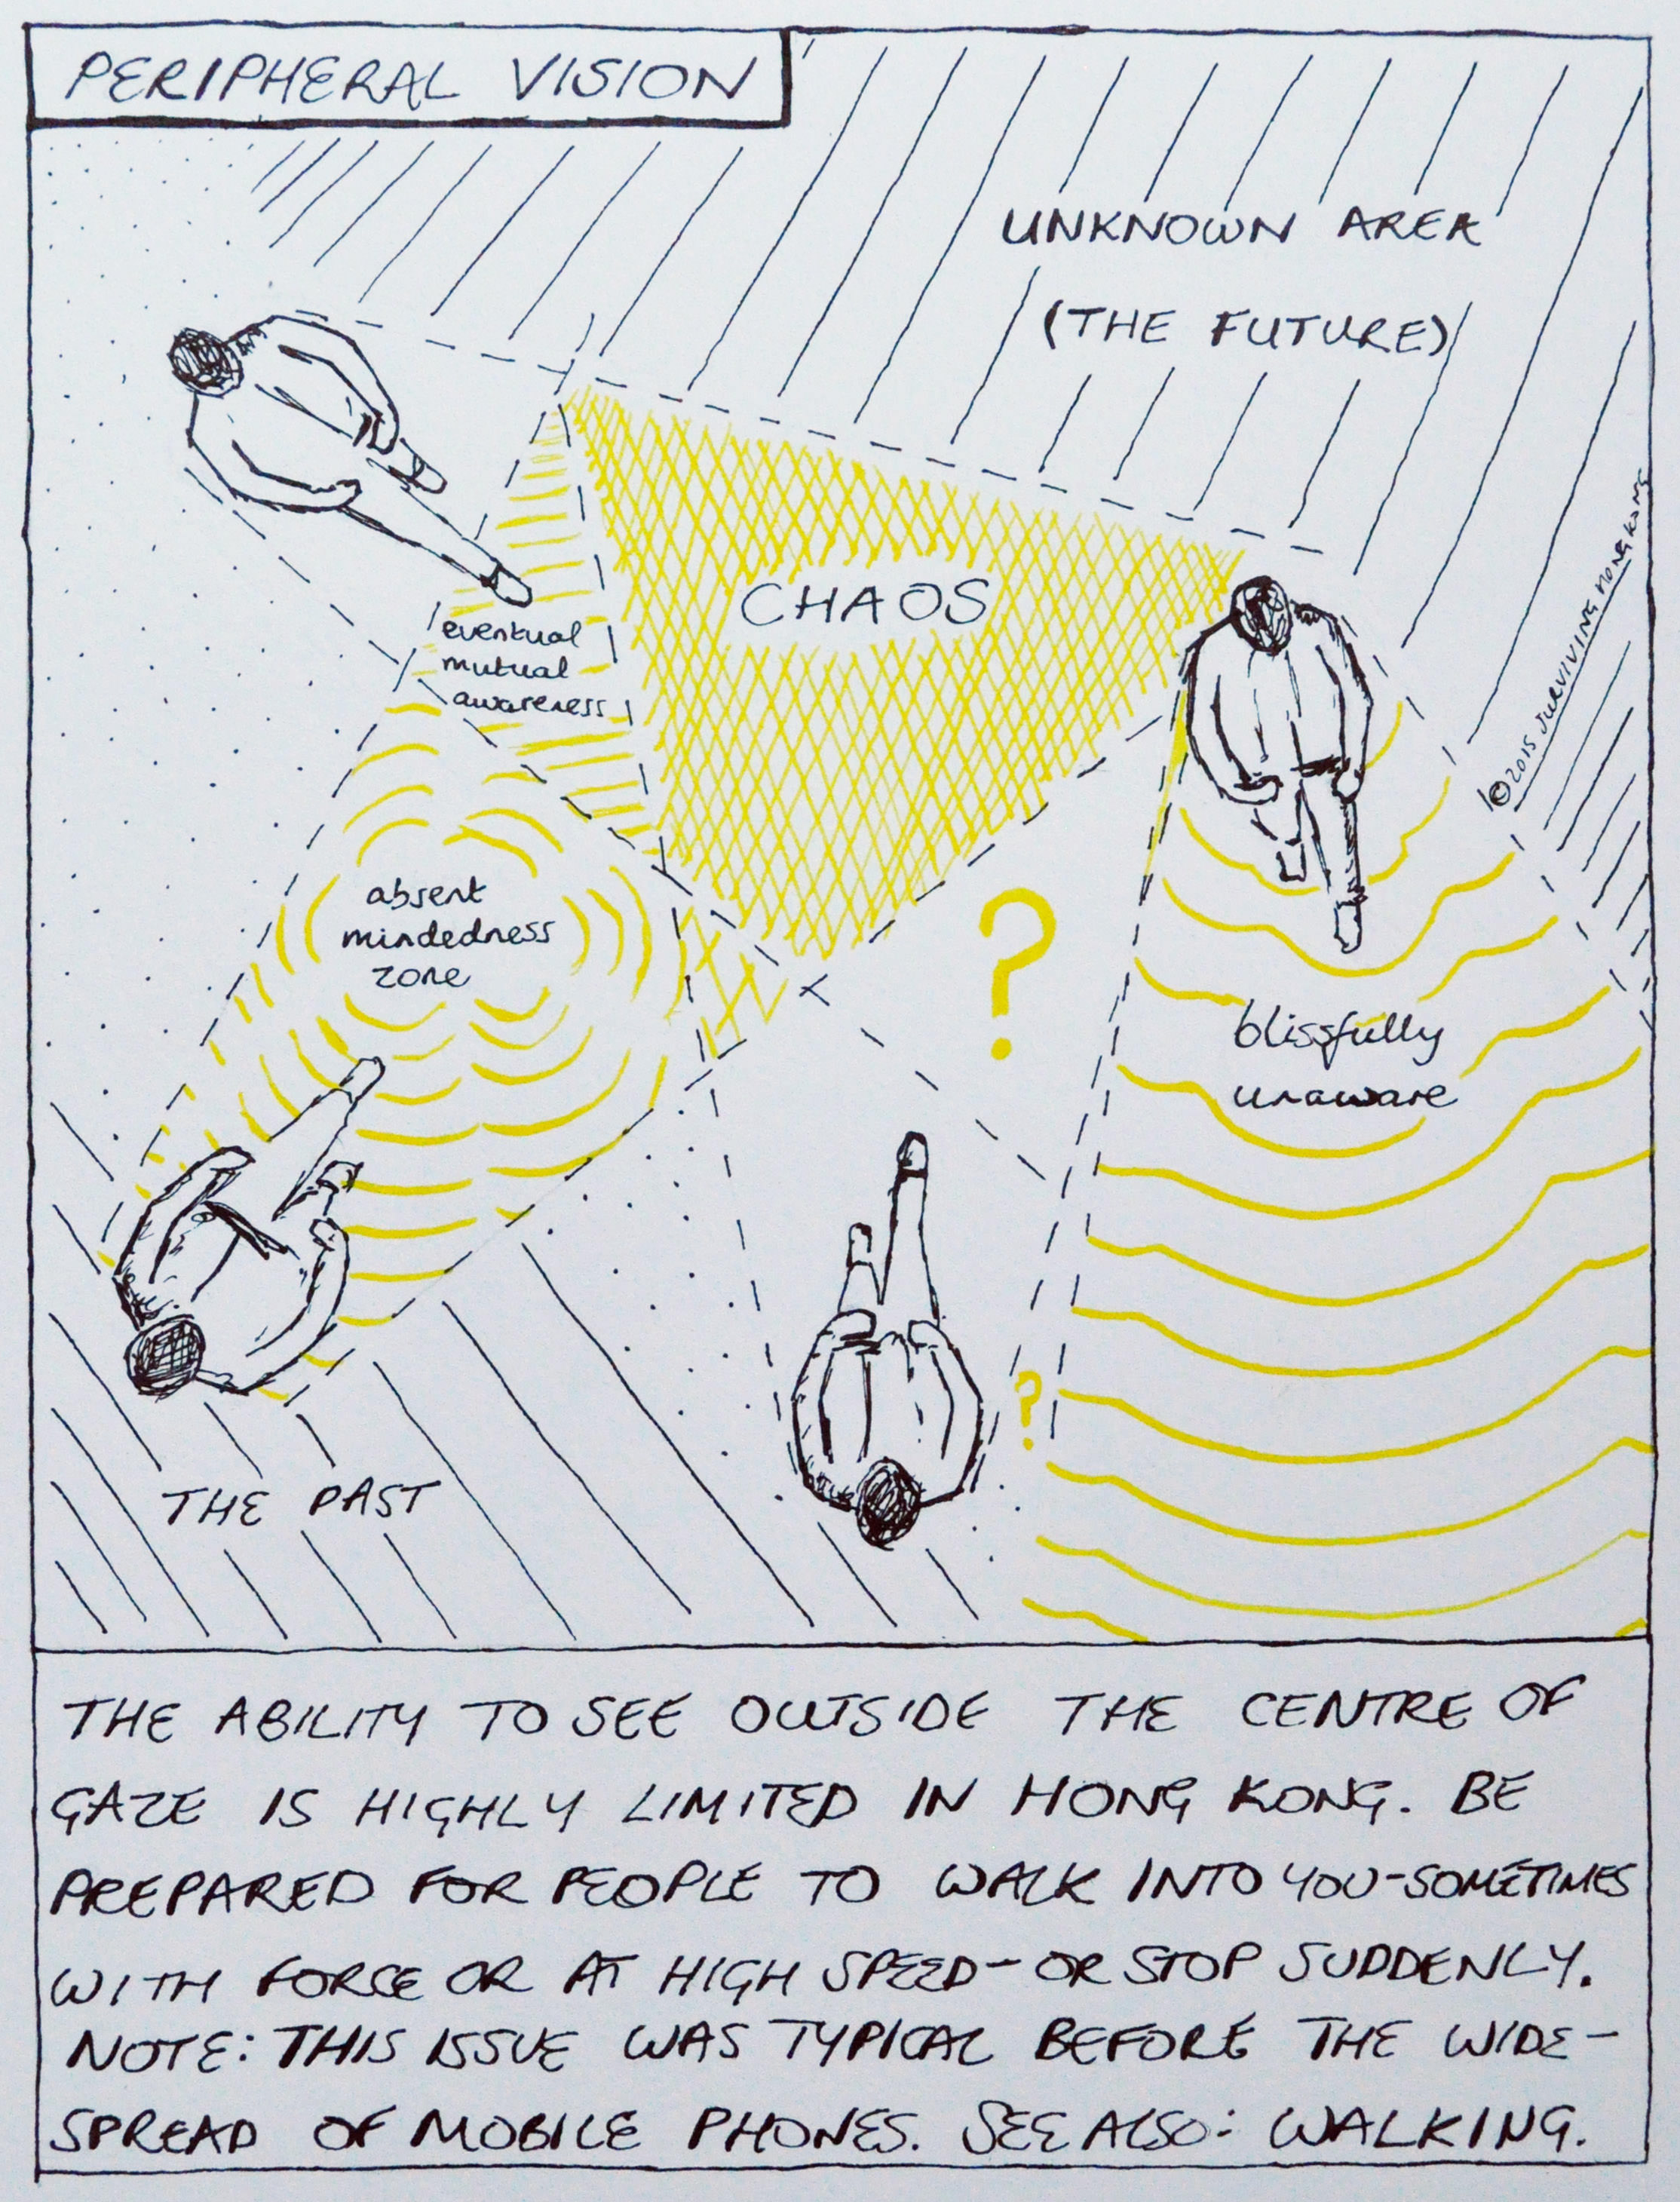 PERIPHERAL VISION
UNKNOWN AREA
(THE FUTURE)
CHAOS
eventual
mutual
awareness
©2015 SURVIVING HONG KONG
absent
mindedness
zone
?
blissfully
unaware
?
THE PAST
THE ABILITY TO SEE OUTSIDE THE CENTRE OF
GAZE IS HIGHLY LIMITED IN HONG KONG. BE
PREPARED FOR PEOPLE TO WALK INTO YOU-SOMETIMES
WITH FORCE OR AT HIGH SPEED-OR STOP SUDDENLY.
NOTE: THIS ISSUE WAS TYPICAL BEFORE THE WIDE-
SPREAD OF MOBILE PHONES. SEE ALSO: WALKING.